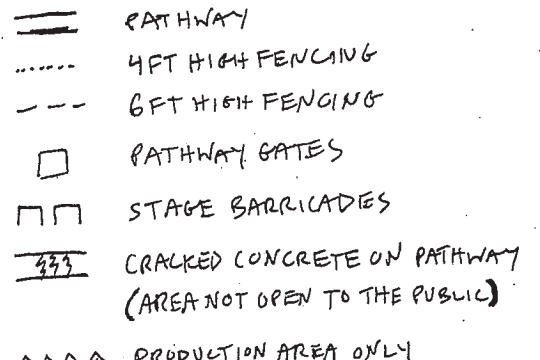 PATHWAY
4FT HIGH FENCING
6FT HIGH FENCING
PATHWAY GATES
STAGE BARRICADES
CRACKED CONCRETE ON PATHWAY
(AREA NOT OPEN TO THE PUBLIC)
PRODUCTION AREA ONLY